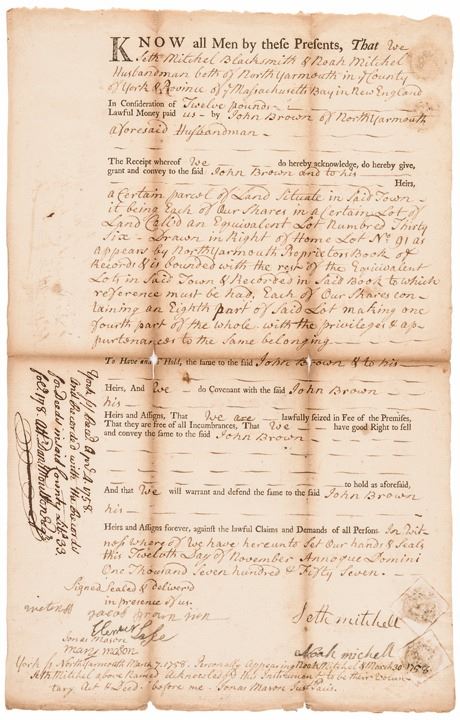 KNOW all Men by these Presents, That We
Seth Mitchel Blacksmith & Noah Mitchel
Husbandman both of North Yarmouth in ye County
of York & Province of ye Massachusetts Bay in New England
In Consideration of Twelve pounds
Lawful Money paid us - by John Brown of North Yarmouth
aforesaid Husbandman
The Receipt whereof We do hereby acknowledge, do hereby give,
grant and convey to the said John Brown and to his
Heirs,
a Certain parcel of Land Situate in Said Town
it being Each of Our Shares in a Certain Lot of
Land Called an Equivalent Lot Numbred Thirty
Six - Drawn in Right of Home Lot No. 91 as
appears by North Yarmouth Proprietors Book of
Records & is bounded with the rest of the Equivalent
Lots in Said Town & Recorded in Said Book to which
reference must be had, Each of Our Shares con-
taining an Eighth part of Said Lot making one
fourth part of the whole with the privileges & ap-
purtenances to the Same belonging
To Have and to Hold, the same to the said John Brown & to his
Heirs, And We do Covenant with the said John Brown
his
Heirs and Assigns, That We are lawfully seized in Fee of the Premises,
That they are free of all Incumbrances, That We have good Right to sell
and convey the same to the said John Brown
to hold as aforesaid,
And that We will warrant and defend the same to the said John Brown
his
Heirs and Assigns forever, against the lawful Claims and Demands of all Persons In Wit-
ness whereof We have hereunto Set Our hands & Seals
this Twelfth Day of November Annoque Domini
One Thousand Seven hundred & Fifty Seven
Signed Sealed & deliverd
in presence of us
Jacob Brown
Jonas Mason
Mary Mason
Seth Mitchell
Noah Michell
York ss North Yarmouth March 7. 1758. Personally Appearing Noah Mitchel & March 30 1758
Seth Mitchel above Named Acknowledged this Instrument to be their Volun-
tary Act & Deed before me Jonas Mason Jus. Pacis
York ss Recd April 4. 1758.
and Recorded with the Records
for Deeds in said County Libo 33
folo 178. Att Danl Moulton Regr